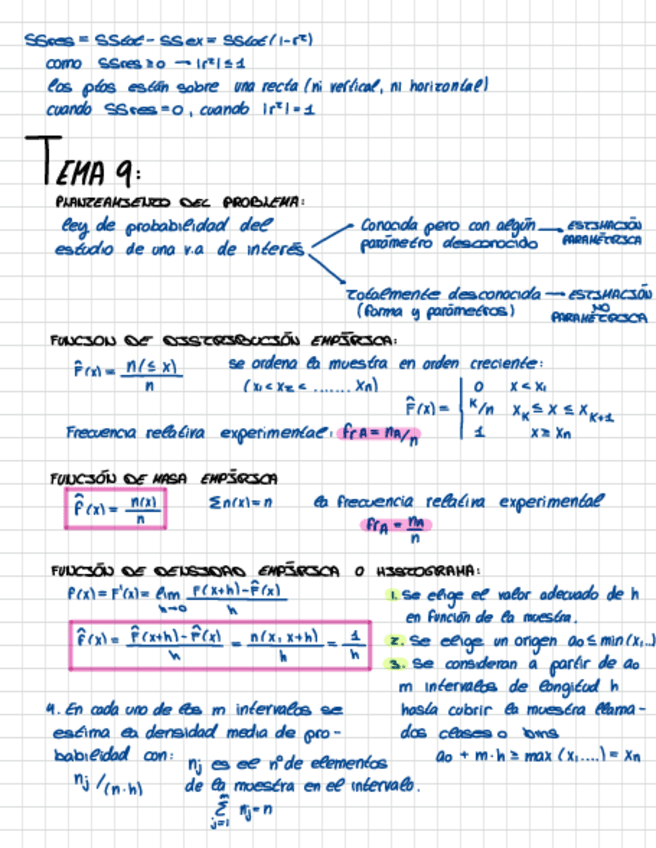 SSres = SStot - SSex = SStot(1-r²)
como SSres ≥ 0 → |r²| ≤ 1
los ptos están sobre una recta (ni vertical, ni horizontal)
cuando SSres = 0, cuando |r²| = 1
TEMA 9:
PLANTEAMIENTO DEL PROBLEMA:
ley de probabilidad del
estudio de una v.a de interés
Conocida pero con algún
parámetro desconocido
— ESTIMACIÓN
PARAMÉTRICA
Totalmente desconocida
(forma y parámetros)
— ESTIMACIÓN
NO
PARAMÉTRICA
FUNCION DE DISTRIBUCIÓN EMPÍRICA:
F̂(x) = n(≤ x) / n
se ordena la muestra en orden creciente:
(x₁ < x₂ < ....... xₙ)
F̂(x) = | 0 x < x₁
| K/n x_K ≤ x ≤ x_{K+1}
| 1 x ≥ xₙ
Frecuencia relativa experimental: frA = nA/n
FUNCIÓN DE MASA EMPÍRICA
P̂(x) = n(x) / n
Σn(x) = n
la frecuencia relativa experimental
frA = nA / n
FUNCIÓN DE DENSIDAD EMPÍRICA O HISTOGRAMA:
f(x) = F'(x) = lim h→0 F(x+h) - F̂(x) / h
f̂(x) = F̂(x+h) - F̂(x) / h = n(x, x+h) / h = 1 / h
1. Se elige el valor adecuado de h
en función de la muestra.
2. Se elige un origen a₀ ≤ min(x₁..)
3. Se consideran a partir de a₀
m intervalos de longitud h
hasta cubrir la muestra llama-
dos clases o bins
a₀ + m·h ≥ max (x₁....) = xₙ
4. En cada uno de los m intervalos se
estima la densidad media de pro-
babilidad con:
nj /(n·h)
nj es el nº de elementos
de la muestra en el intervalo.
Σ j=1 nj = n